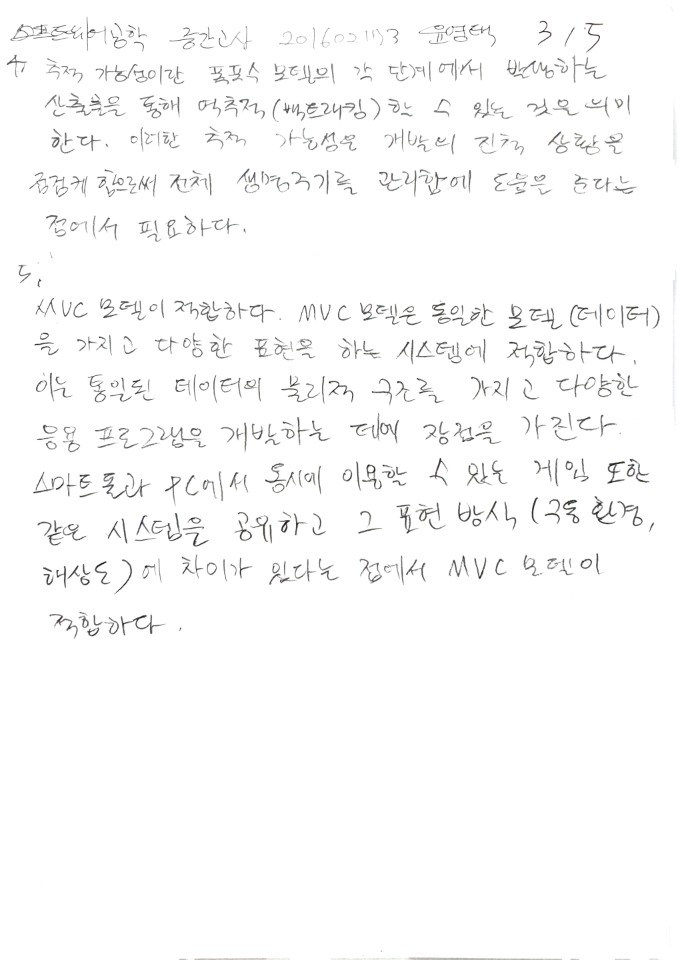 소프트웨어공학 중간고사 윤영택 3/5
4, 추적 가능성이란 폭포수 모델의 각 단계에서 발생하는
산출물을 통해 역추적(백트래킹) 할 수 있는 것을 의미
한다. 이러한 추적 가능성은 개발의 진척 상황을
점검케 함으로써 전체 생명주기를 관리함에 도움을 준다는
점에서 필요하다.
5,
MVC 모델이 적합하다. MVC 모델은 동일한 모델(데이터)
을 가지고 다양한 표현을 하는 시스템에 적합하다.
이는 통일된 데이터의 물리적 구조를 가지고 다양한
응용 프로그램을 개발하는 데에 장점을 가진다.
스마트폰과 PC에서 동시에 이용할 수 있는 게임 또한
같은 시스템을 공유하고 그 표현 방식(구동 환경,
해상도)에 차이가 있다는 점에서 MVC 모델이
적합하다.